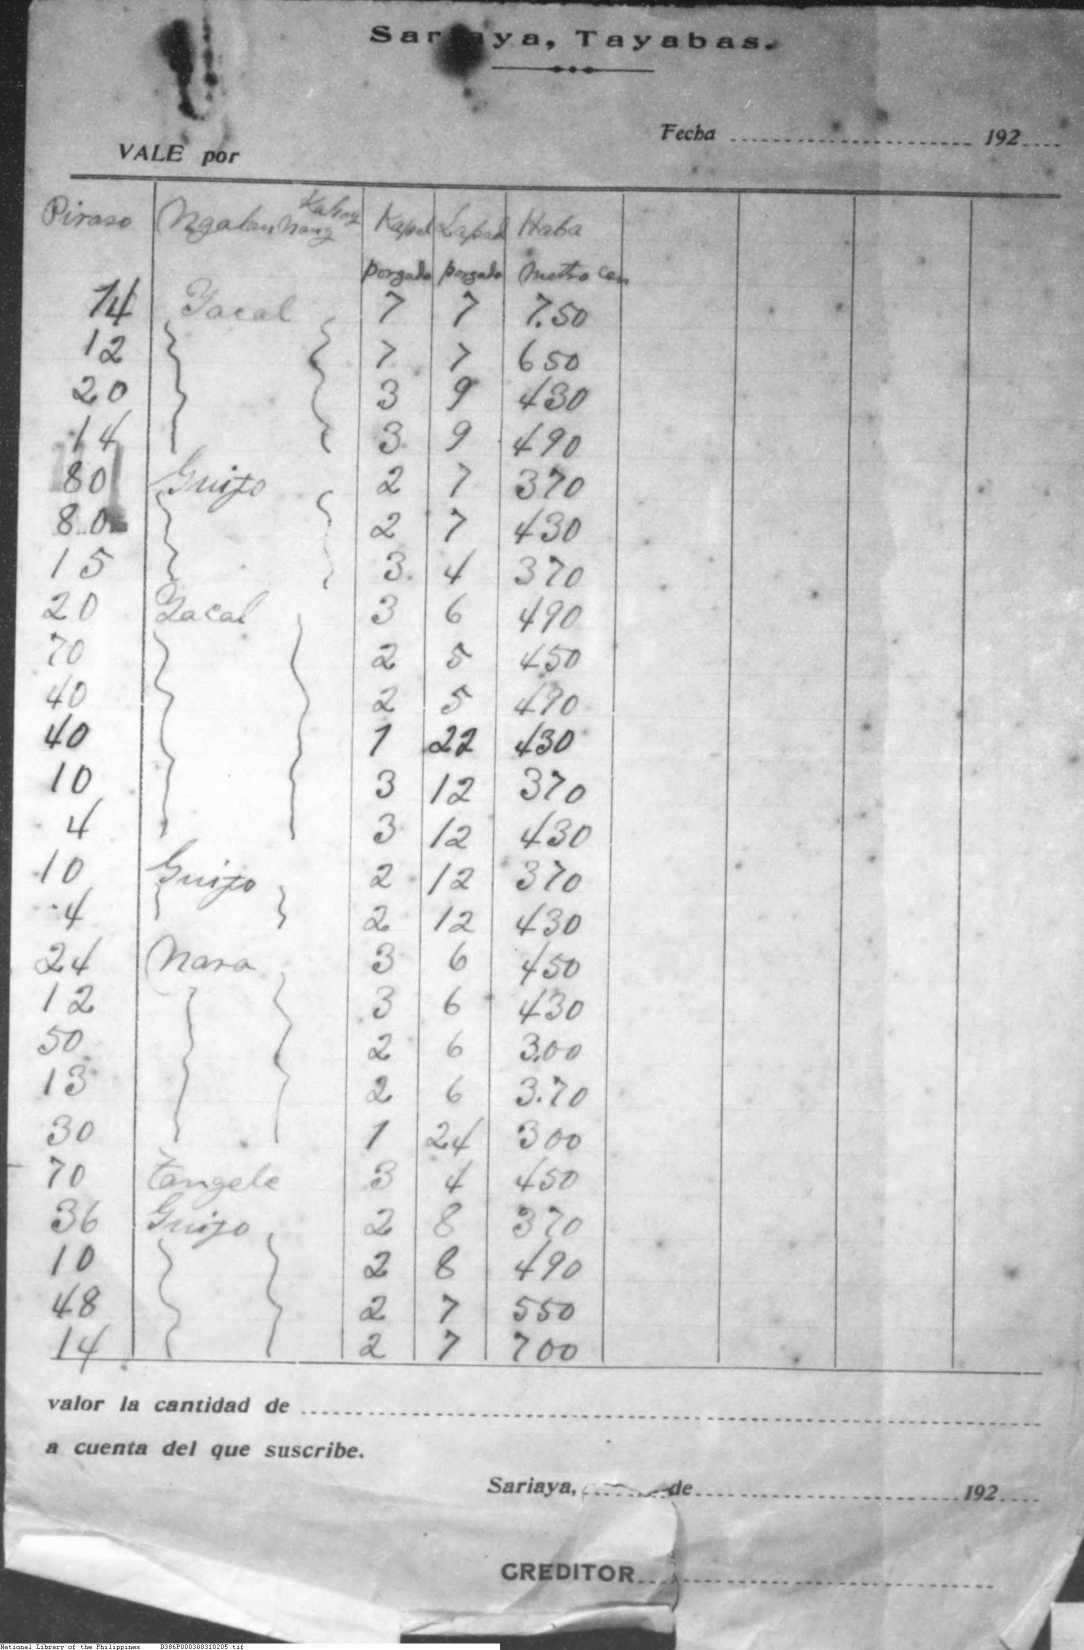 Sariaya, Tayabas.
Fecha 192
VALE por
Piraso Ngalan Nang Kahoy Kapal Lapad Haba
porgada porgada metro cen
14 Yacal 7 7 7.50
12 7 7 650
20 3 9 430
14 3 9 490
80 Guijo 2 7 370
80 2 7 430
15 3 4 370
20 Yacal 3 6 490
70 2 5 450
40 2 5 490
40 1 22 430
10 3 12 370
4 3 12 430
10 Guijo 2 12 370
4 2 12 430
24 Nara 3 6 450
12 3 6 430
50 2 6 3.00
13 2 6 3.70
30 1 24 300
70 Tangele 3 4 450
36 Guijo 2 8 370
10 2 8 490
48 2 7 550
14 2 7 700
valor la cantidad de
a cuenta del que suscribe.
Sariaya, de 192
CREDITOR
National Library of the Philippines D386P000300310205.tif